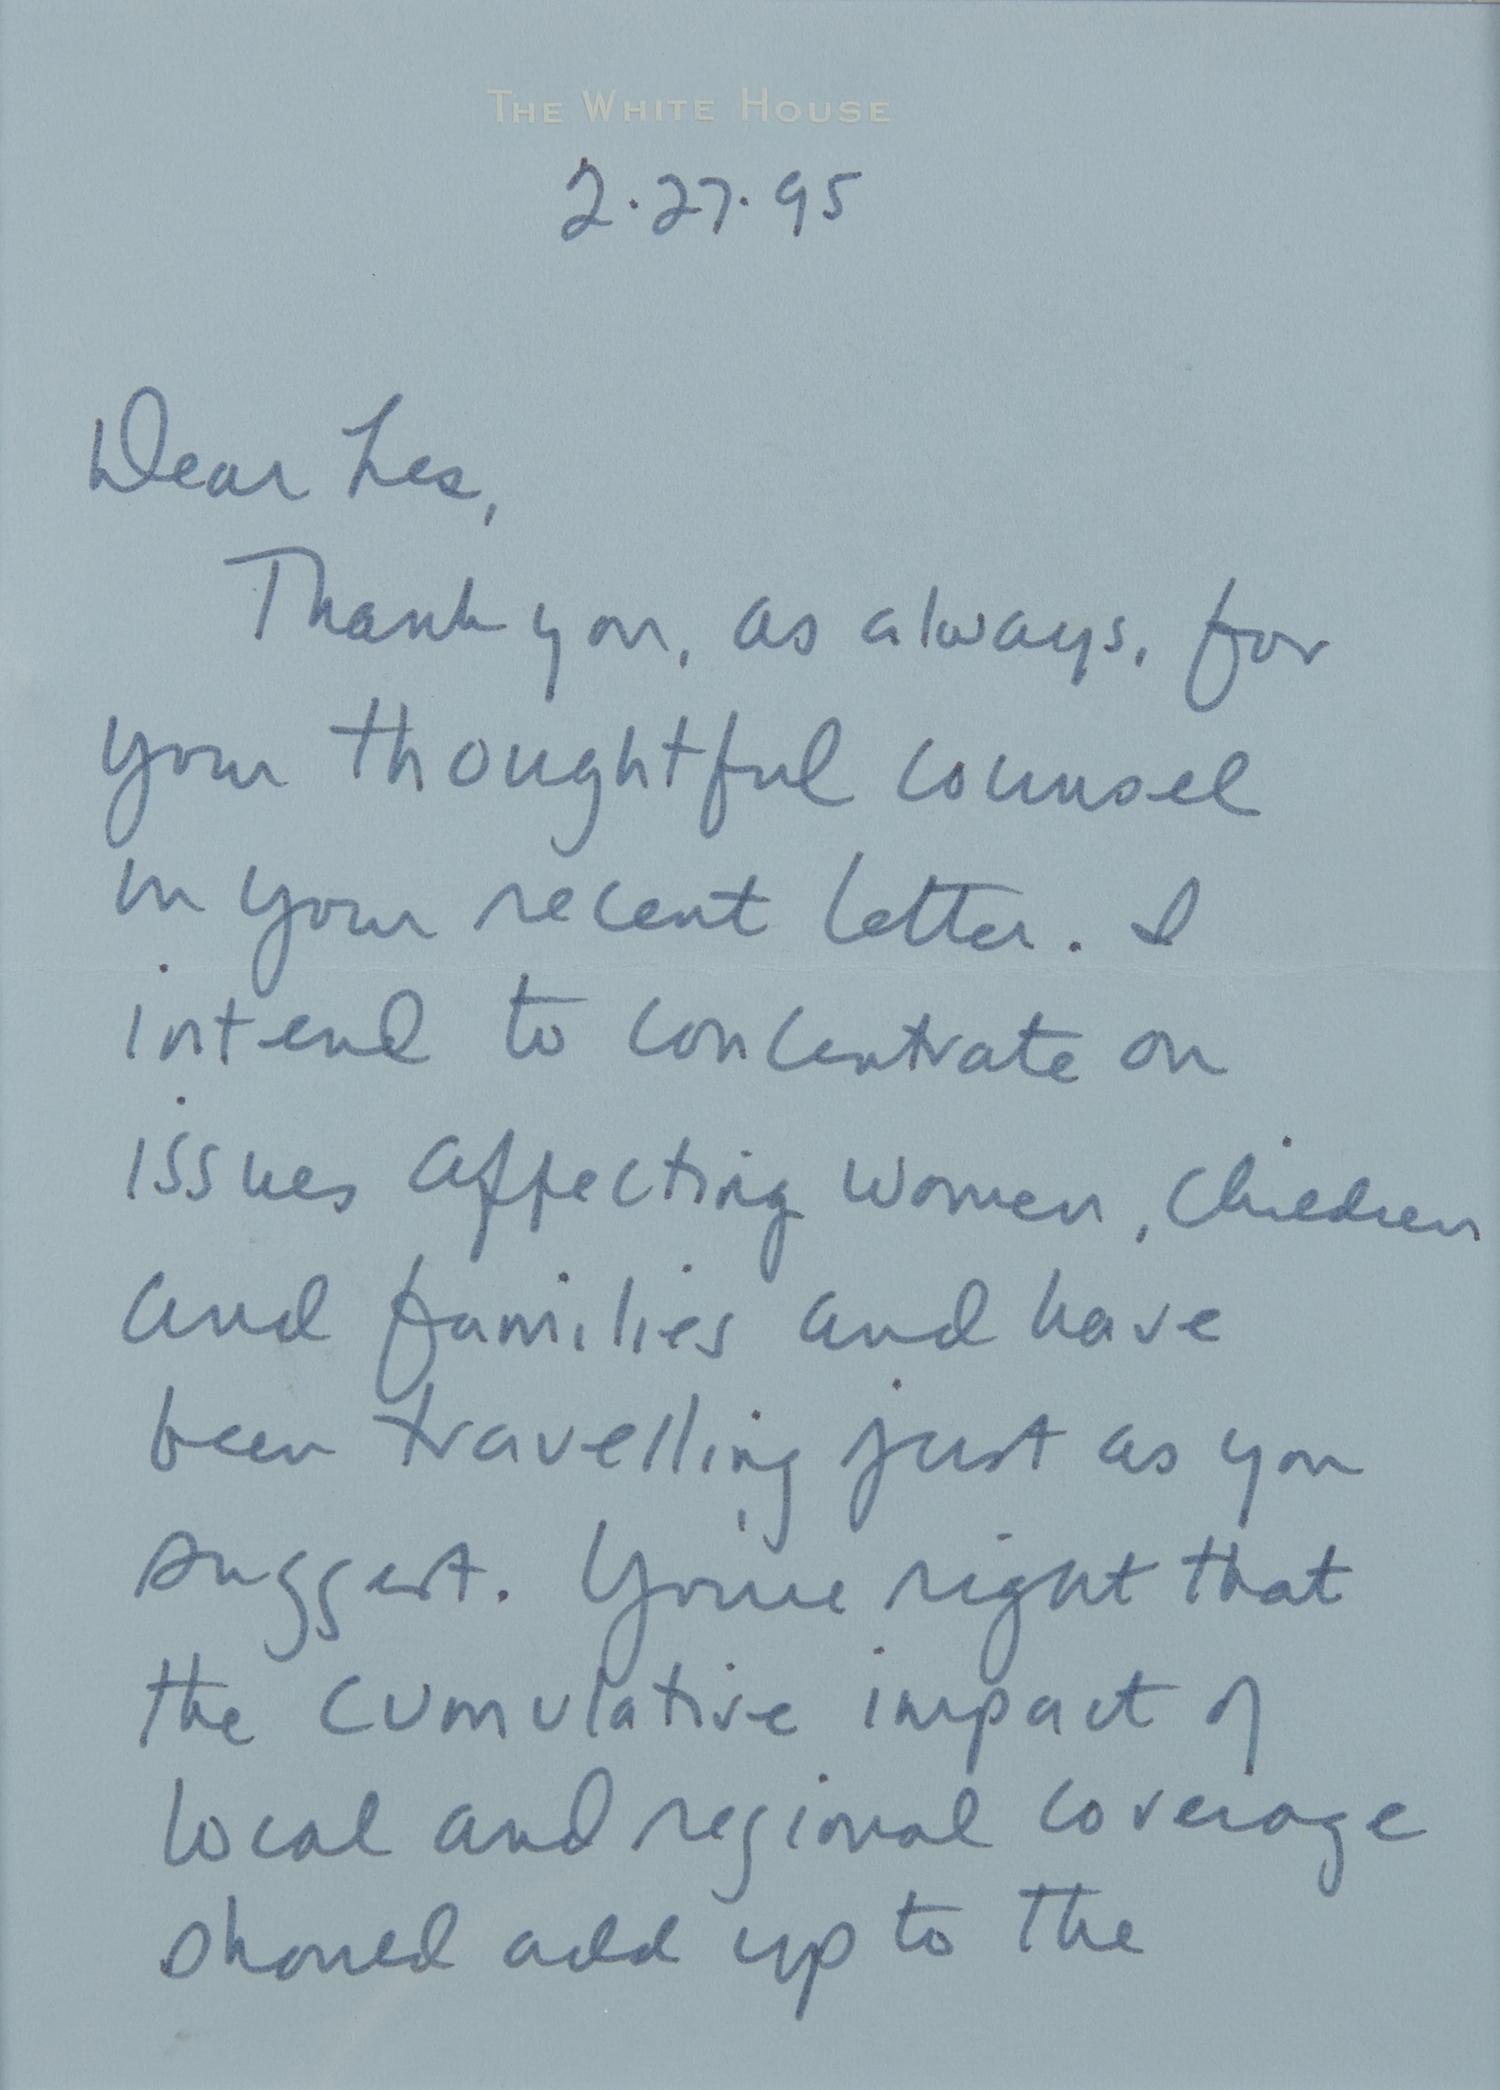 THE WHITE HOUSE
2.27.95
Dear Les,
Thank you, as always, for
your thoughtful counsel
in your recent letter. I
intend to concentrate on
issues affecting women, children
and families and have
been travelling just as you
suggest. You're right that
the cumulative impact of
local and regional coverage
should add up to the